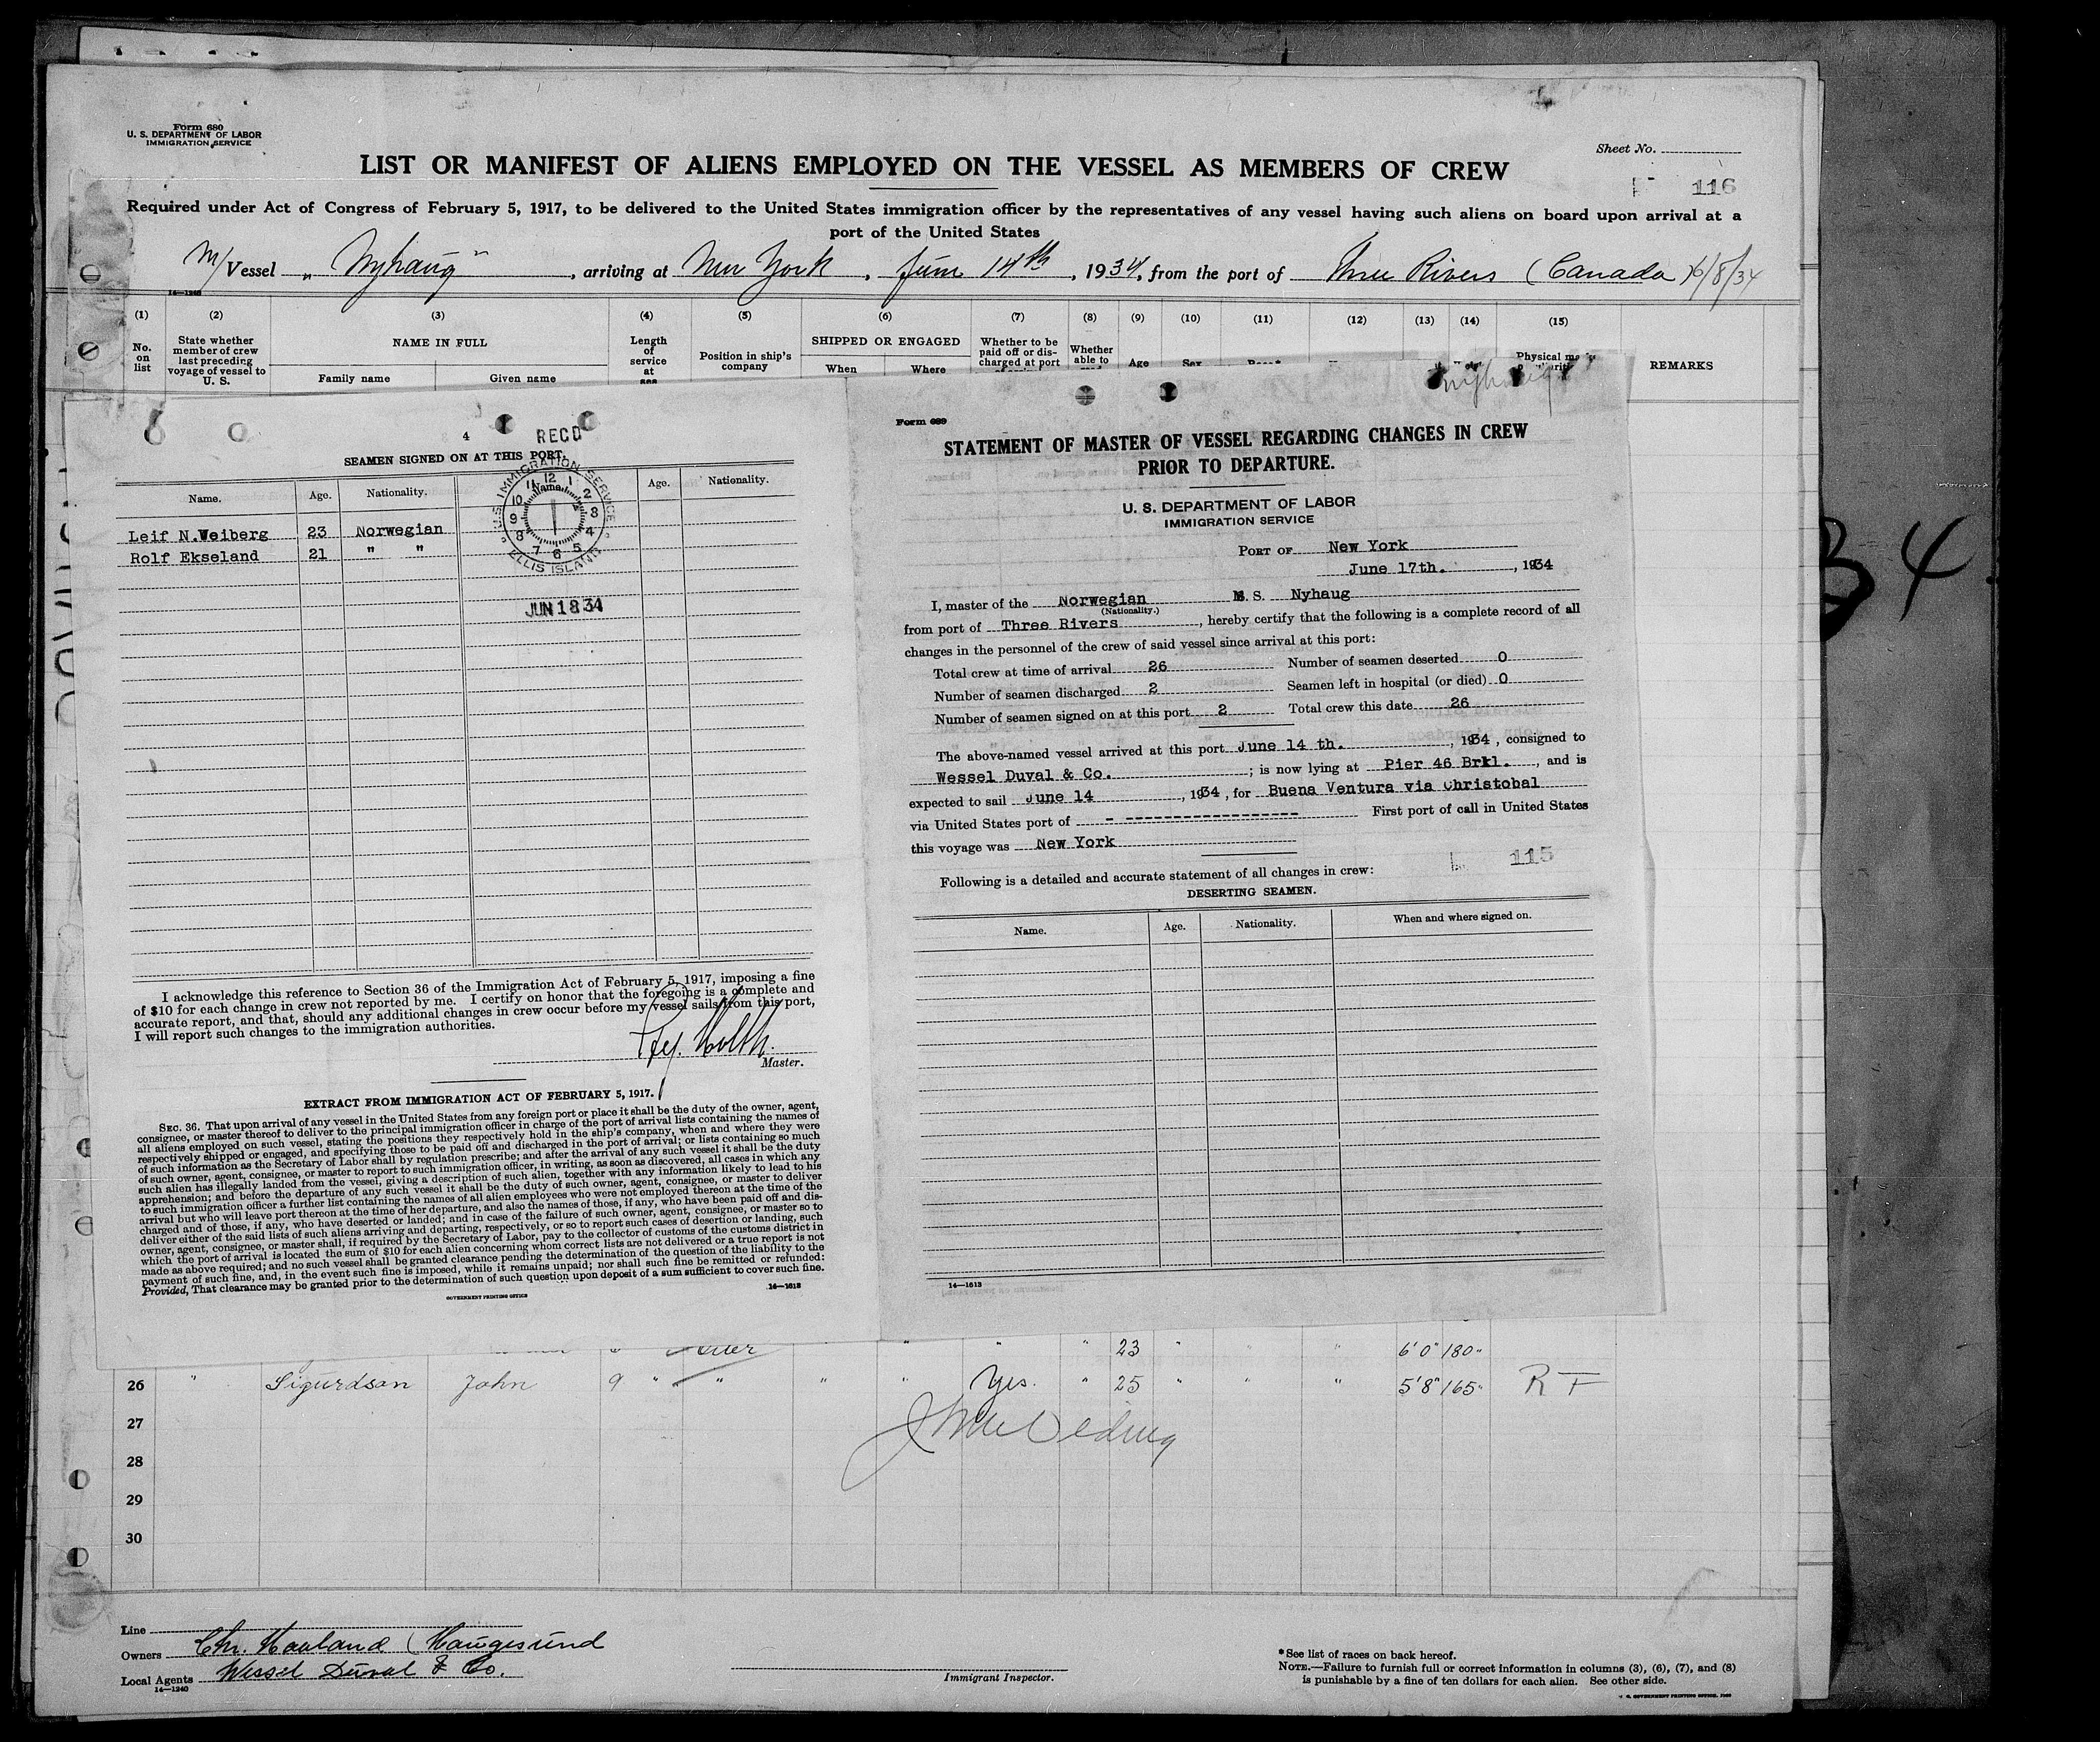 Form 680
U. S. DEPARTMENT OF LABOR
IMMIGRATION SERVICE
Sheet No.
LIST OR MANIFEST OF ALIENS EMPLOYED ON THE VESSEL AS MEMBERS OF CREW
116
Required under Act of Congress of February 5, 1917, to be delivered to the United States immigration officer by the representatives of any vessel having such aliens on board upon arrival at a
port of the United States
M/ Vessel "Nyhaug", arriving at New York, June 14th, 1934, from the port of Three Rivers (Canada) 6/8/34
14—1240
(1) (2) (3) (4) (5) (6) (7) (8) (9) (10) (11) (12) (13) (14) (15)
No. on list
State whether member of crew last preceding voyage of vessel to U. S.
NAME IN FULL
Family name Given name
Length of service at sea
Position in ship's company
SHIPPED OR ENGAGED
When Where
Whether to be paid off or discharged at port
Whether able to
Age
Sex
REMARKS
4
RECD
SEAMEN SIGNED ON AT THIS PORT.
Name. Age. Nationality. Name. Age. Nationality.
U.S. IMMIGRATION SERVICE
ELLIS ISLAND
12 1 2 3 4 5 6 7 8 9 10 11
JUN 18 34
Leif N.Weiberg 23 Norwegian
Rolf Ekseland 21 " "
I acknowledge this reference to Section 36 of the Immigration Act of February 5, 1917, imposing a fine
of $10 for each change in crew not reported by me. I certify on honor that the foregoing is a complete and
accurate report, and that, should any additional changes in crew occur before my vessel sails from this port,
I will report such changes to the immigration authorities.
Holth.
Master.
EXTRACT FROM IMMIGRATION ACT OF FEBRUARY 5, 1917.
SEC. 36. That upon arrival of any vessel in the United States from any foreign port or place it shall be the duty of the owner, agent,
consignee, or master thereof to deliver to the principal immigration officer in charge of the port of arrival lists containing the names of
all aliens employed on such vessel, stating the positions they respectively hold in the ship's company, when and where they were
respectively shipped or engaged, and specifying those to be paid off and discharged in the port of arrival; or lists containing so much
of such information as the Secretary of Labor shall by regulation prescribe; and after the arrival of any such vessel it shall be the duty
of such owner, agent, consignee, or master to report to such immigration officer, in writing, as soon as discovered, all cases in which any
such alien has illegally landed from the vessel, giving a description of such alien, together with any information likely to lead to his
apprehension; and before the departure of any such vessel it shall be the duty of such owner, agent, consignee, or master to deliver
to such immigration officer a further list containing the names of all alien employees who were not employed thereon at the time of the
arrival but who will leave port thereon at the time of her departure, and also the names of those, if any, who have been paid off and dis-
charged and of those, if any, who have deserted or landed; and in case of the failure of such owner, agent, consignee, or master so to
deliver either of the said lists of such aliens arriving and departing, respectively, or so to report such cases of desertion or landing, such
owner, agent, consignee, or master shall, if required by the Secretary of Labor, pay to the collector of customs of the customs district in
which the port of arrival is located the sum of $10 for each alien concerning whom correct lists are not delivered or a true report is not
made as above required; and no such vessel shall be granted clearance pending the determination of the question of the liability to the
payment of such fine, and, in the event such fine is imposed, while it remains unpaid; nor shall such fine be remitted or refunded:
Provided, That clearance may be granted prior to the determination of such question upon deposit of a sum sufficient to cover such fine.
GOVERNMENT PRINTING OFFICE 14—1613
Nyhaug
Form 689
STATEMENT OF MASTER OF VESSEL REGARDING CHANGES IN CREW
PRIOR TO DEPARTURE.
U. S. DEPARTMENT OF LABOR
IMMIGRATION SERVICE
PORT OF New York
June 17th., 1934
I, master of the Norwegian M. S. Nyhaug
(Nationality.)
from port of Three Rivers, hereby certify that the following is a complete record of all
changes in the personnel of the crew of said vessel since arrival at this port:
Total crew at time of arrival 26 Number of seamen deserted 0
Number of seamen discharged 2 Seamen left in hospital (or died) 0
Number of seamen signed on at this port 2 Total crew this date 26
The above-named vessel arrived at this port June 14 th., 1934, consigned to
Wessel Duval & Co.; is now lying at Pier 46 Brkl., and is
expected to sail June 14, 1934, for Buena Ventura via Christobal
via United States port of - ------------------ First port of call in United States
this voyage was New York
115
Following is a detailed and accurate statement of all changes in crew:
DESERTING SEAMEN.
Name. Age. Nationality. When and where signed on.
14—1613
B4
" " " 23 " " " 6'0" 180"
26 " Sigurdson John 9 " " " " Yes. " 25 " " " 5'8" 165" R F
27
28
29
30
Line
Owners Chr. Haaland (Haugesund
Local Agents Wessel Duval & Co.
14—1240
Immigrant Inspector.
*See list of races on back hereof.
NOTE.—Failure to furnish full or correct information in columns (3), (6), (7), and (8)
is punishable by a fine of ten dollars for each alien. See other side.
U. S. GOVERNMENT PRINTING OFFICE